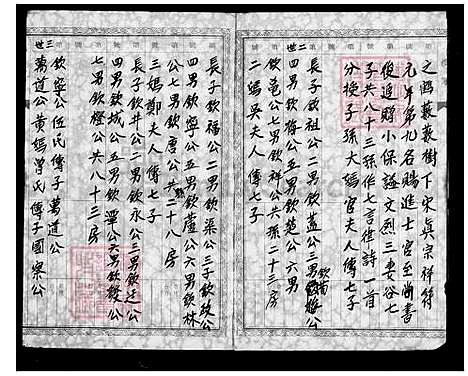 之鷗蓛蓛樹下宋真宗祥符
元年第九名賜進士官至尚書
後追贈小保謚文烈三妻谷七
子共八十三孫作七言律詩一首
分授子孫大媽官夫人傳七子
二世
長子欽祖公二男欽蘆公三男欽梅公
四男欽梅公五男欽楚公六男
欽竜公七男欽祥公共孫二十三房
二媽吳夫人傳七子
長子欽福公二男欽渠公三子欽紋公
四男欽寧公五男欽蘆公六男欽林
公七男欽唐公共二十八房
三媽鄭夫人傳七子
長子欽井公二男欽永公三男欽廷公
四男欽城公五男欽灃公六男欽發公
七男欽橙公共八十三房
三世
欽寧公伍氏傳子萬道公
萬道公黃媽曾氏傳子國察公